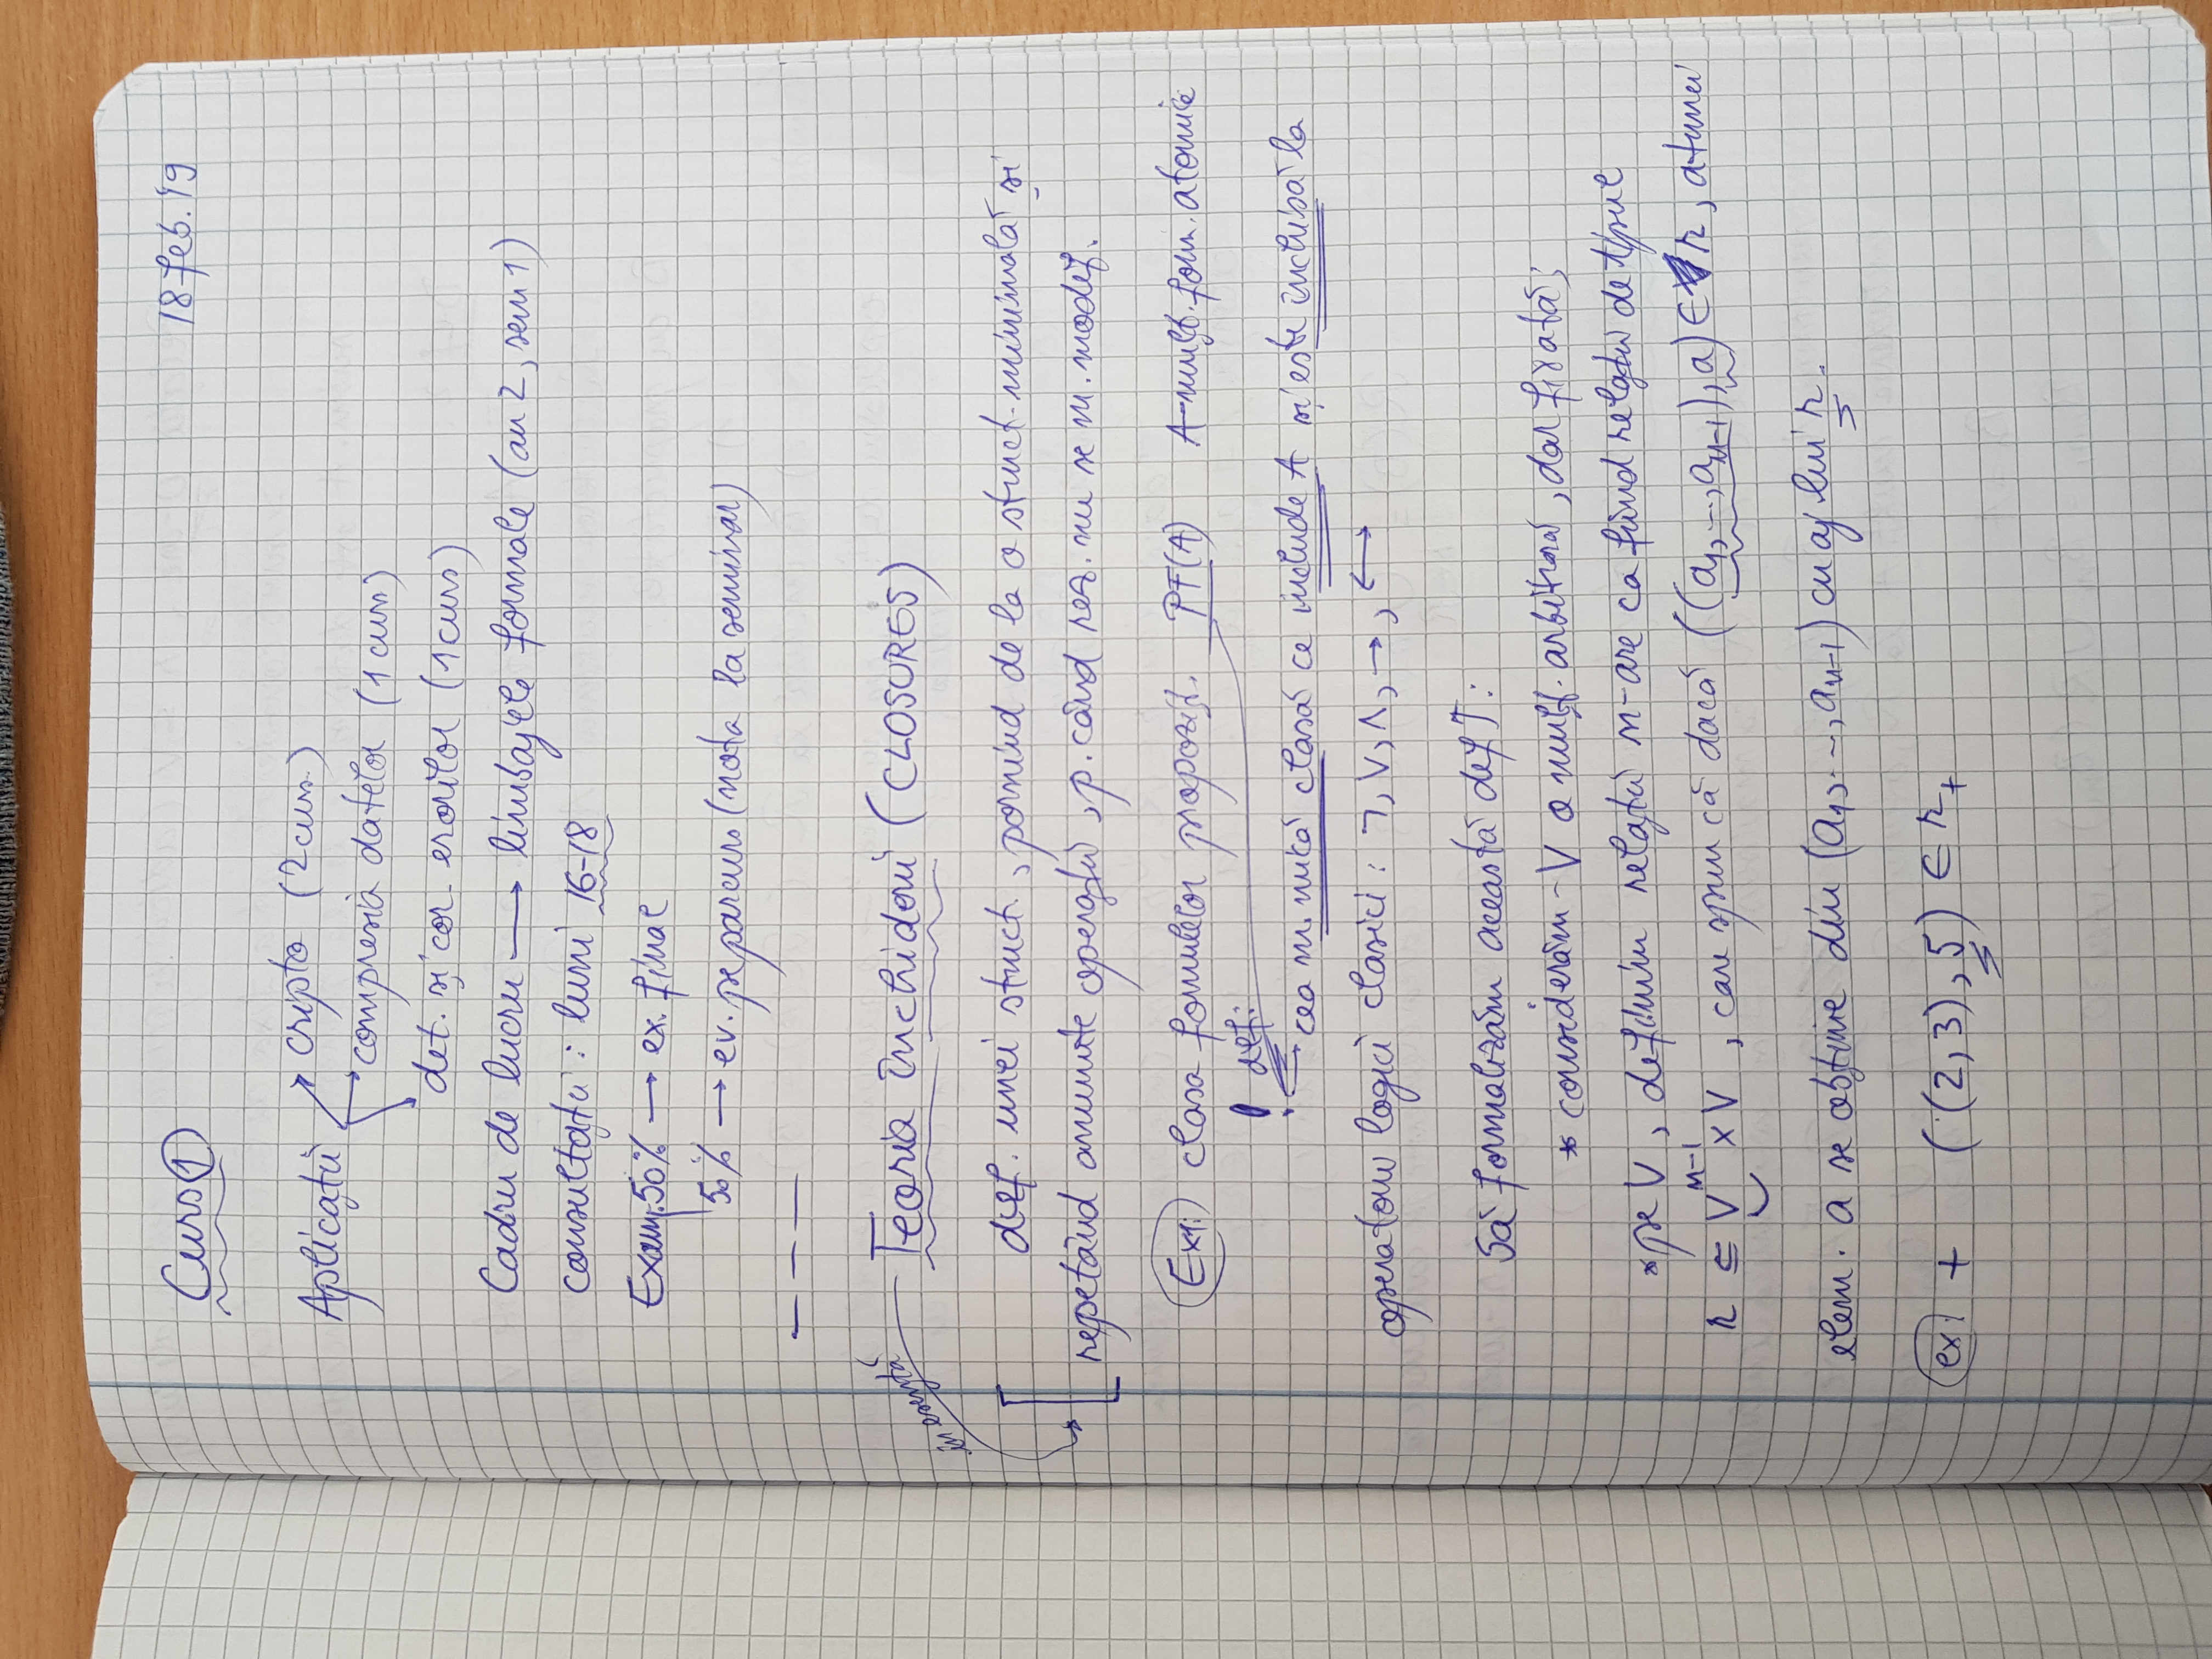 Curs 1
18 feb. '19
Aplicații → cripto (2 curs.)
→ compresia datelor (1 curs)
→ det. și cor. erorilor (1 curs)
Cadru de lucru → limbajele formale (an 2, sem 1)
consultații: luni 16-18
Exam. 50% → ex. final
50% → ev. pe parcurs (nota la seminar)
— — —
Teoria închiderii (CLOSURES)
în esență
def. unei struct., pornind de la o struct. minimală și
repetând anumite operații, p. când rez. nu se m. modif.
Ex1: clasa formulelor propoziț. PF(A) A-mulț. form. atomice
! def:
cea m. mică clasă ce include A și este închisă la
operatorii logici clasici: ¬, ∨, ∧, →, ↔
Să formalizăm această def:
* considerăm - V o mulț. arbitrară, dar fixată;
* pe V, definim relații n-are ca fiind relații de tipul
r ⊆ Vⁿ⁻¹ × V, care spun că dacă ((a₁, ..., aₙ₋₁), a) ∈ r, atunci
elem. a se obține din (a₁, ..., aₙ₋₁) cu aj lui r.
ex: + ((2,3), 5) ∈ r₊